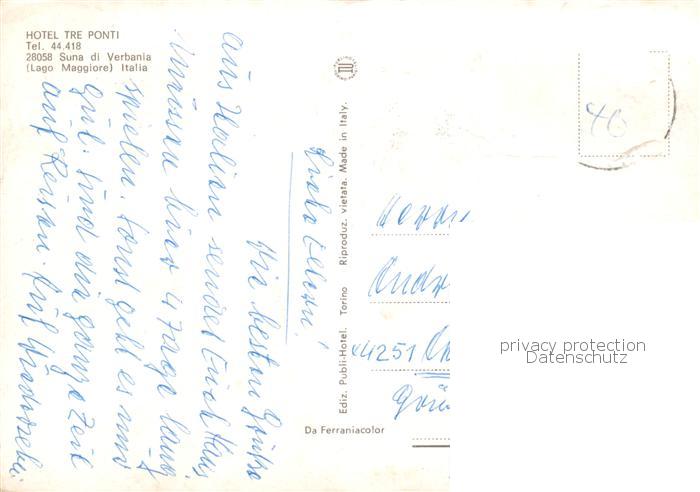 HOTEL TRE PONTI
Tel. 44.418
28058 Suna di Verbania
(Lago Maggiore) Italia
Liebe Eltern!
Die besten Grüße
aus Italien sendet Euch Klaus
müssen hier 4 Tage lang
spielen. Sonst geht es mir
gut. Sind die ganze Zeit
auf Reisen. Auf Wiedersehn
Ediz. Publi-Hotel. Torino Riproduz. vietata. Made in Italy.
Da Ferraniacolor
40
4251
privacy protection
Datenschutz